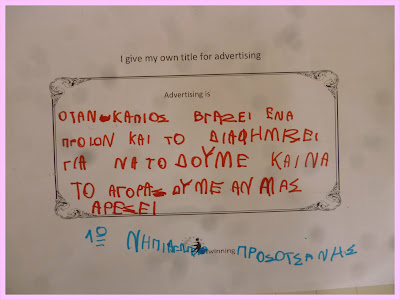 I give my own title for advertising
Advertising is
ΟΤΑΝ ΚΑΠΙΟΣ ΒΓΑΖΕΙ ΕΝΑ
ΠΡΟΙΟΝ ΚΑΙ ΤΟ ΔΙΑΦΗΜΙΖΕΙ
ΓΙΑ ΝΑ ΤΟ ΔΟΥΜΕ ΚΑΙ ΝΑ
ΤΟ ΑΓΟΡΑΖΟΥΜΕ ΑΝ ΜΑΣ
ΑΡΕΣΕΙ
1ο ΝΗΠΙΑ twinning ΠΡΟΣΟΤΣΑΝΗΣ